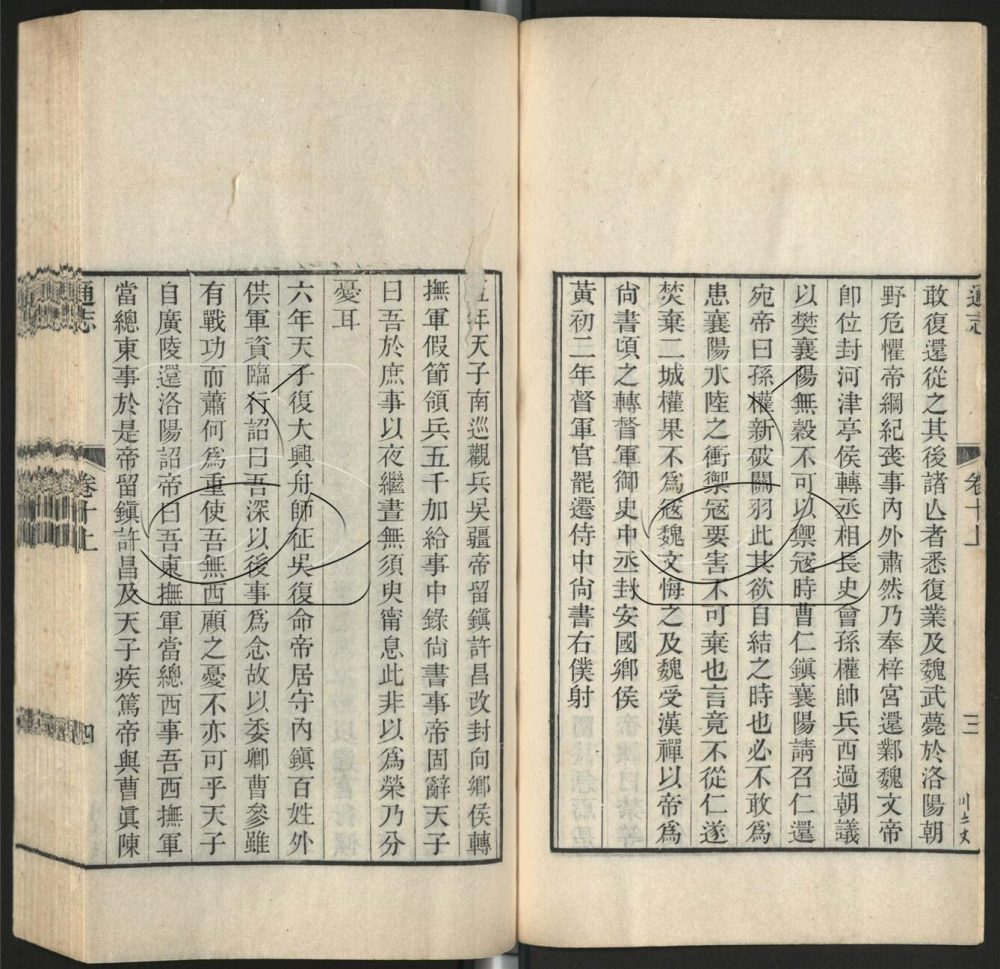 通志
卷十上
三
敢復還從之其後諸亾者悉復業及魏武薨於洛陽朝
野危懼帝綱紀喪事內外肅然乃奉梓宮還鄴魏文帝
卽位封河津亭侯轉丞相長史會孫權帥兵西過朝議
以樊襄陽無穀不可以禦寇時曹仁鎭襄陽請召仁還
宛帝曰孫權新破關羽此其欲自結之時也必不敢爲
患襄陽水陸之衝禦寇要害不可棄也言竟不從仁遂
焚棄二城權果不爲寇魏文悔之及魏受漢禪以帝爲
尙書頃之轉督軍御史中丞封安國鄕侯
黃初二年督軍官罷遷侍中尙書右僕射
五年天子南巡觀兵吳疆帝留鎭許昌改封向鄕侯轉
撫軍假節領兵五千加給事中錄尙書事帝固辭天子
曰吾於庶事以夜繼晝無須臾甯息此非以爲榮乃分
憂耳
六年天子復大興舟師征吳復命帝居守內鎭百姓外
供軍資臨行詔曰吾深以後事爲念故以委卿曹參雖
有戰功而蕭何爲重使吾無西顧之憂不亦可乎天子
自廣陵還洛陽詔帝曰吾東撫軍當總西事吾西撫軍
當總東事於是帝留鎭許昌及天子疾篤帝與曹眞陳
通志
卷十上
四